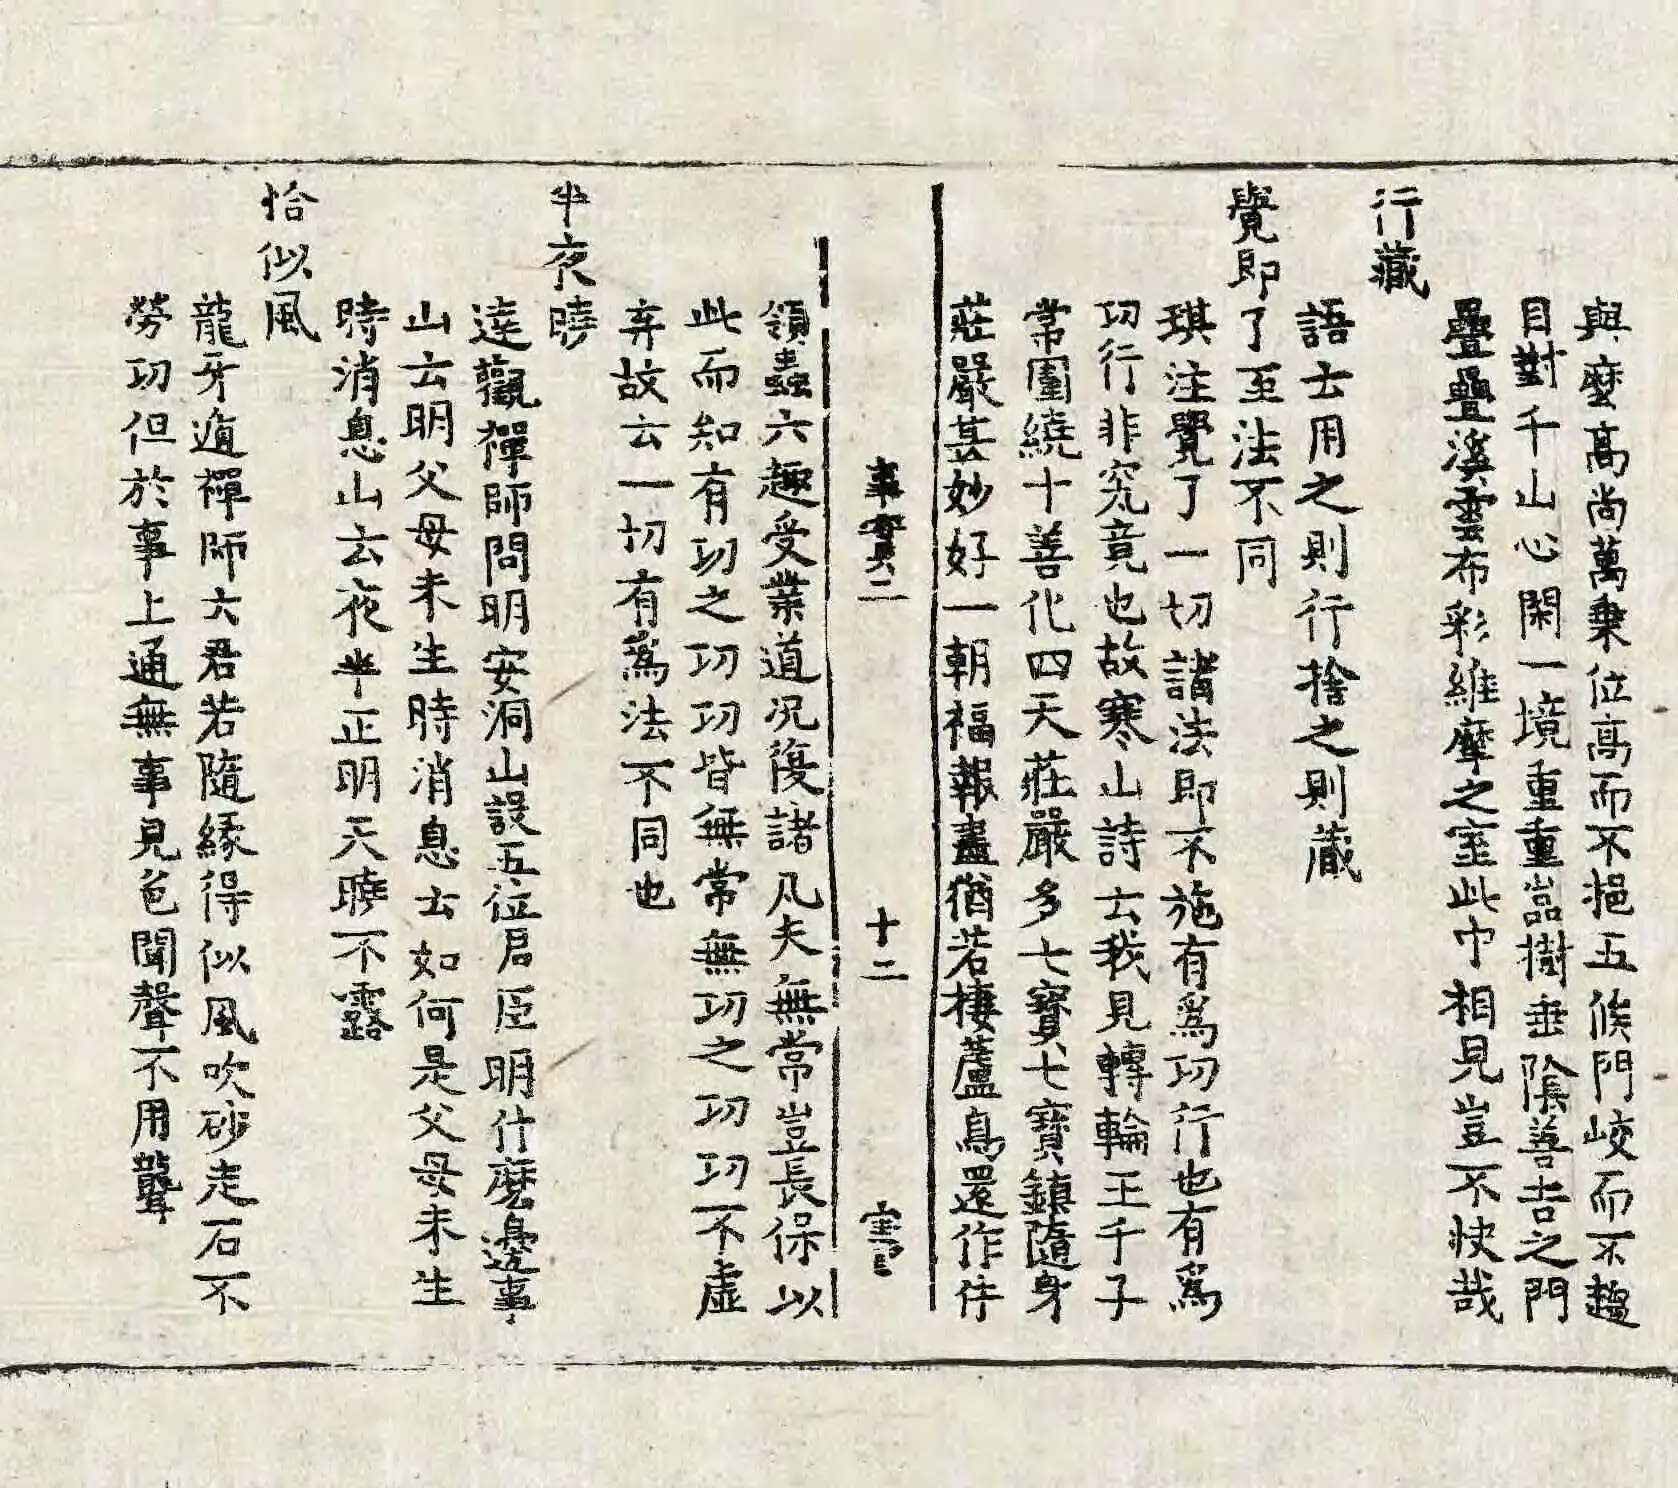 與麼高尚萬乗位高而不挹五候門峻而不趨
目對千山心閑一境重重嵓樹垂陰善吉之門
疊疊溪雲布彩維摩之室此中相見豈不快哉
行藏
語云用之則行捨之則蔵
覺即了至法不同
琪注覺了一切諸法即不施有爲功行也有爲
功行非究竟也故寒山詩云我見轉輪王千子
常圍繞十善化四天莊嚴多七寶七寶鎮隨身
莊嚴甚妙好一朝福報盡猶若棲蘆鳥還作牛
事實二 十二
領蟲六趣受業道况復諸凡夫無常豈長保以
此而知有功之功功皆無常無功之功功不虛
弃故云一切有爲法不同也
半夜曉
達觀禪師問明安洞山設五位君臣明什麽邊事
山云明父母未生時消息云如何是父母未生
時消息山云夜半正明天曉不露
恰似風
龍牙遁禪師云君若隨緣得似風吹砂走石不
勞功但於事上通無事見色聞聲不用聾